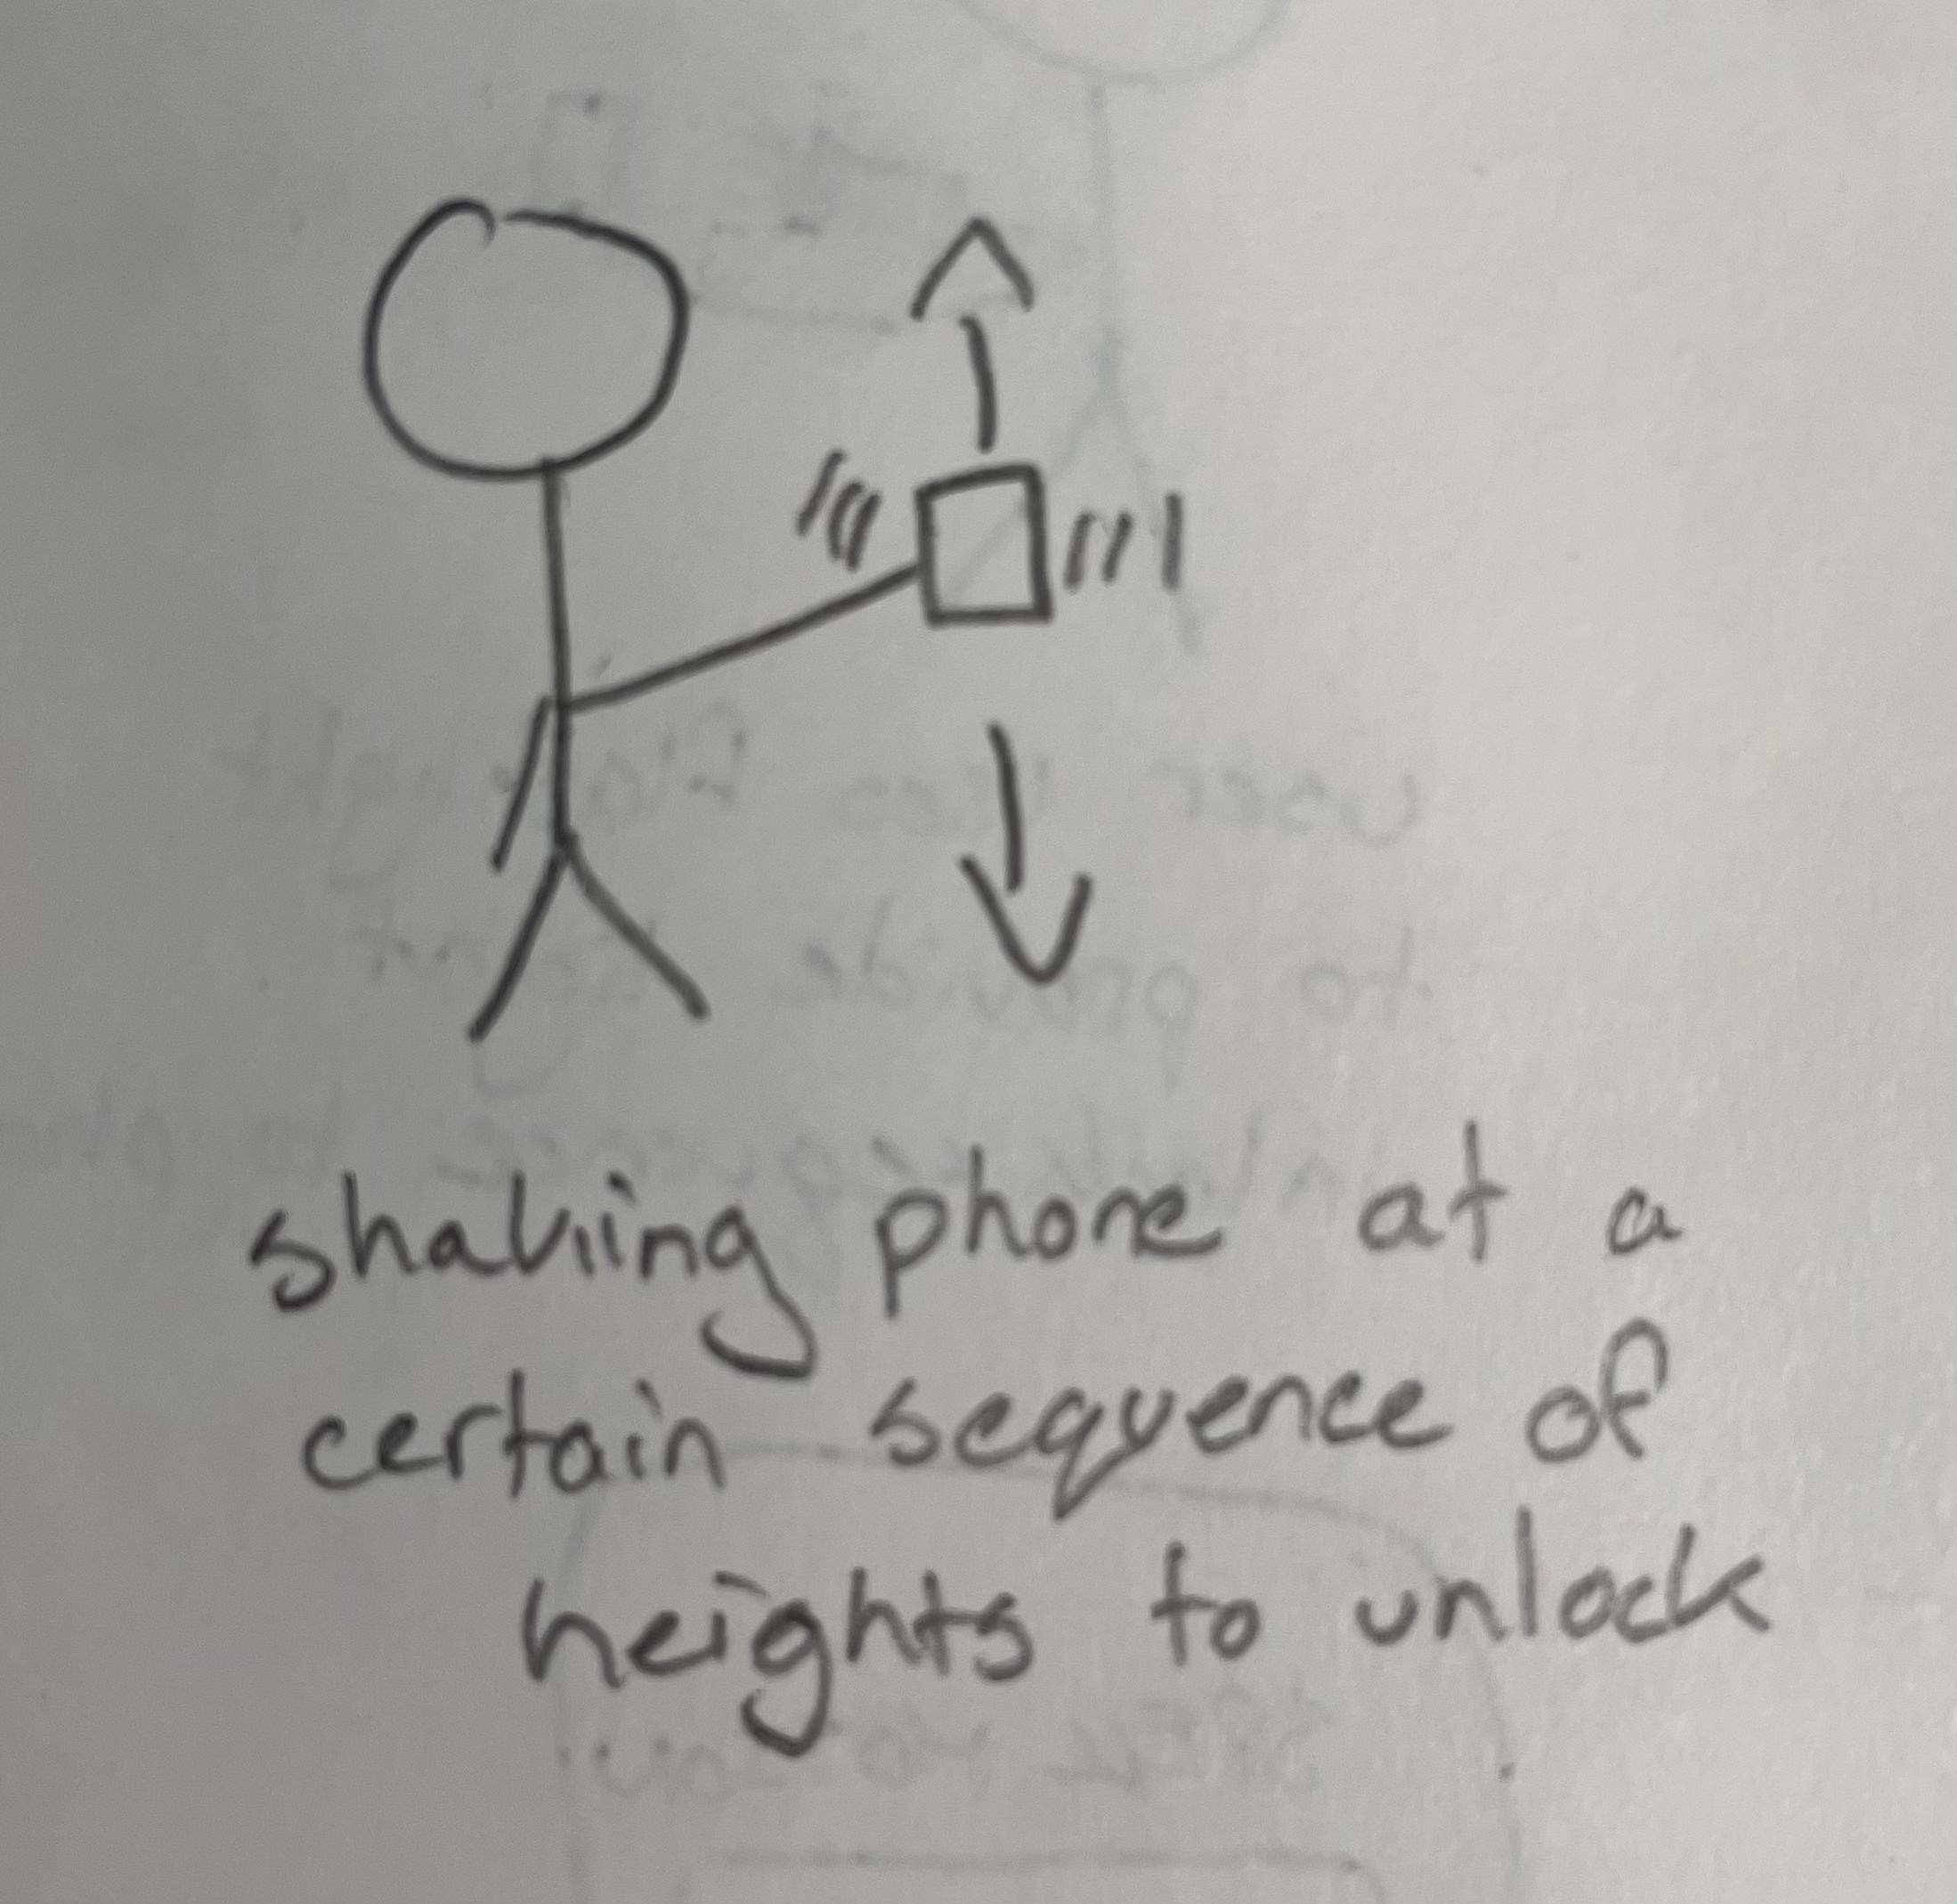 shaking phone at a
certain sequence of
heights to unlock